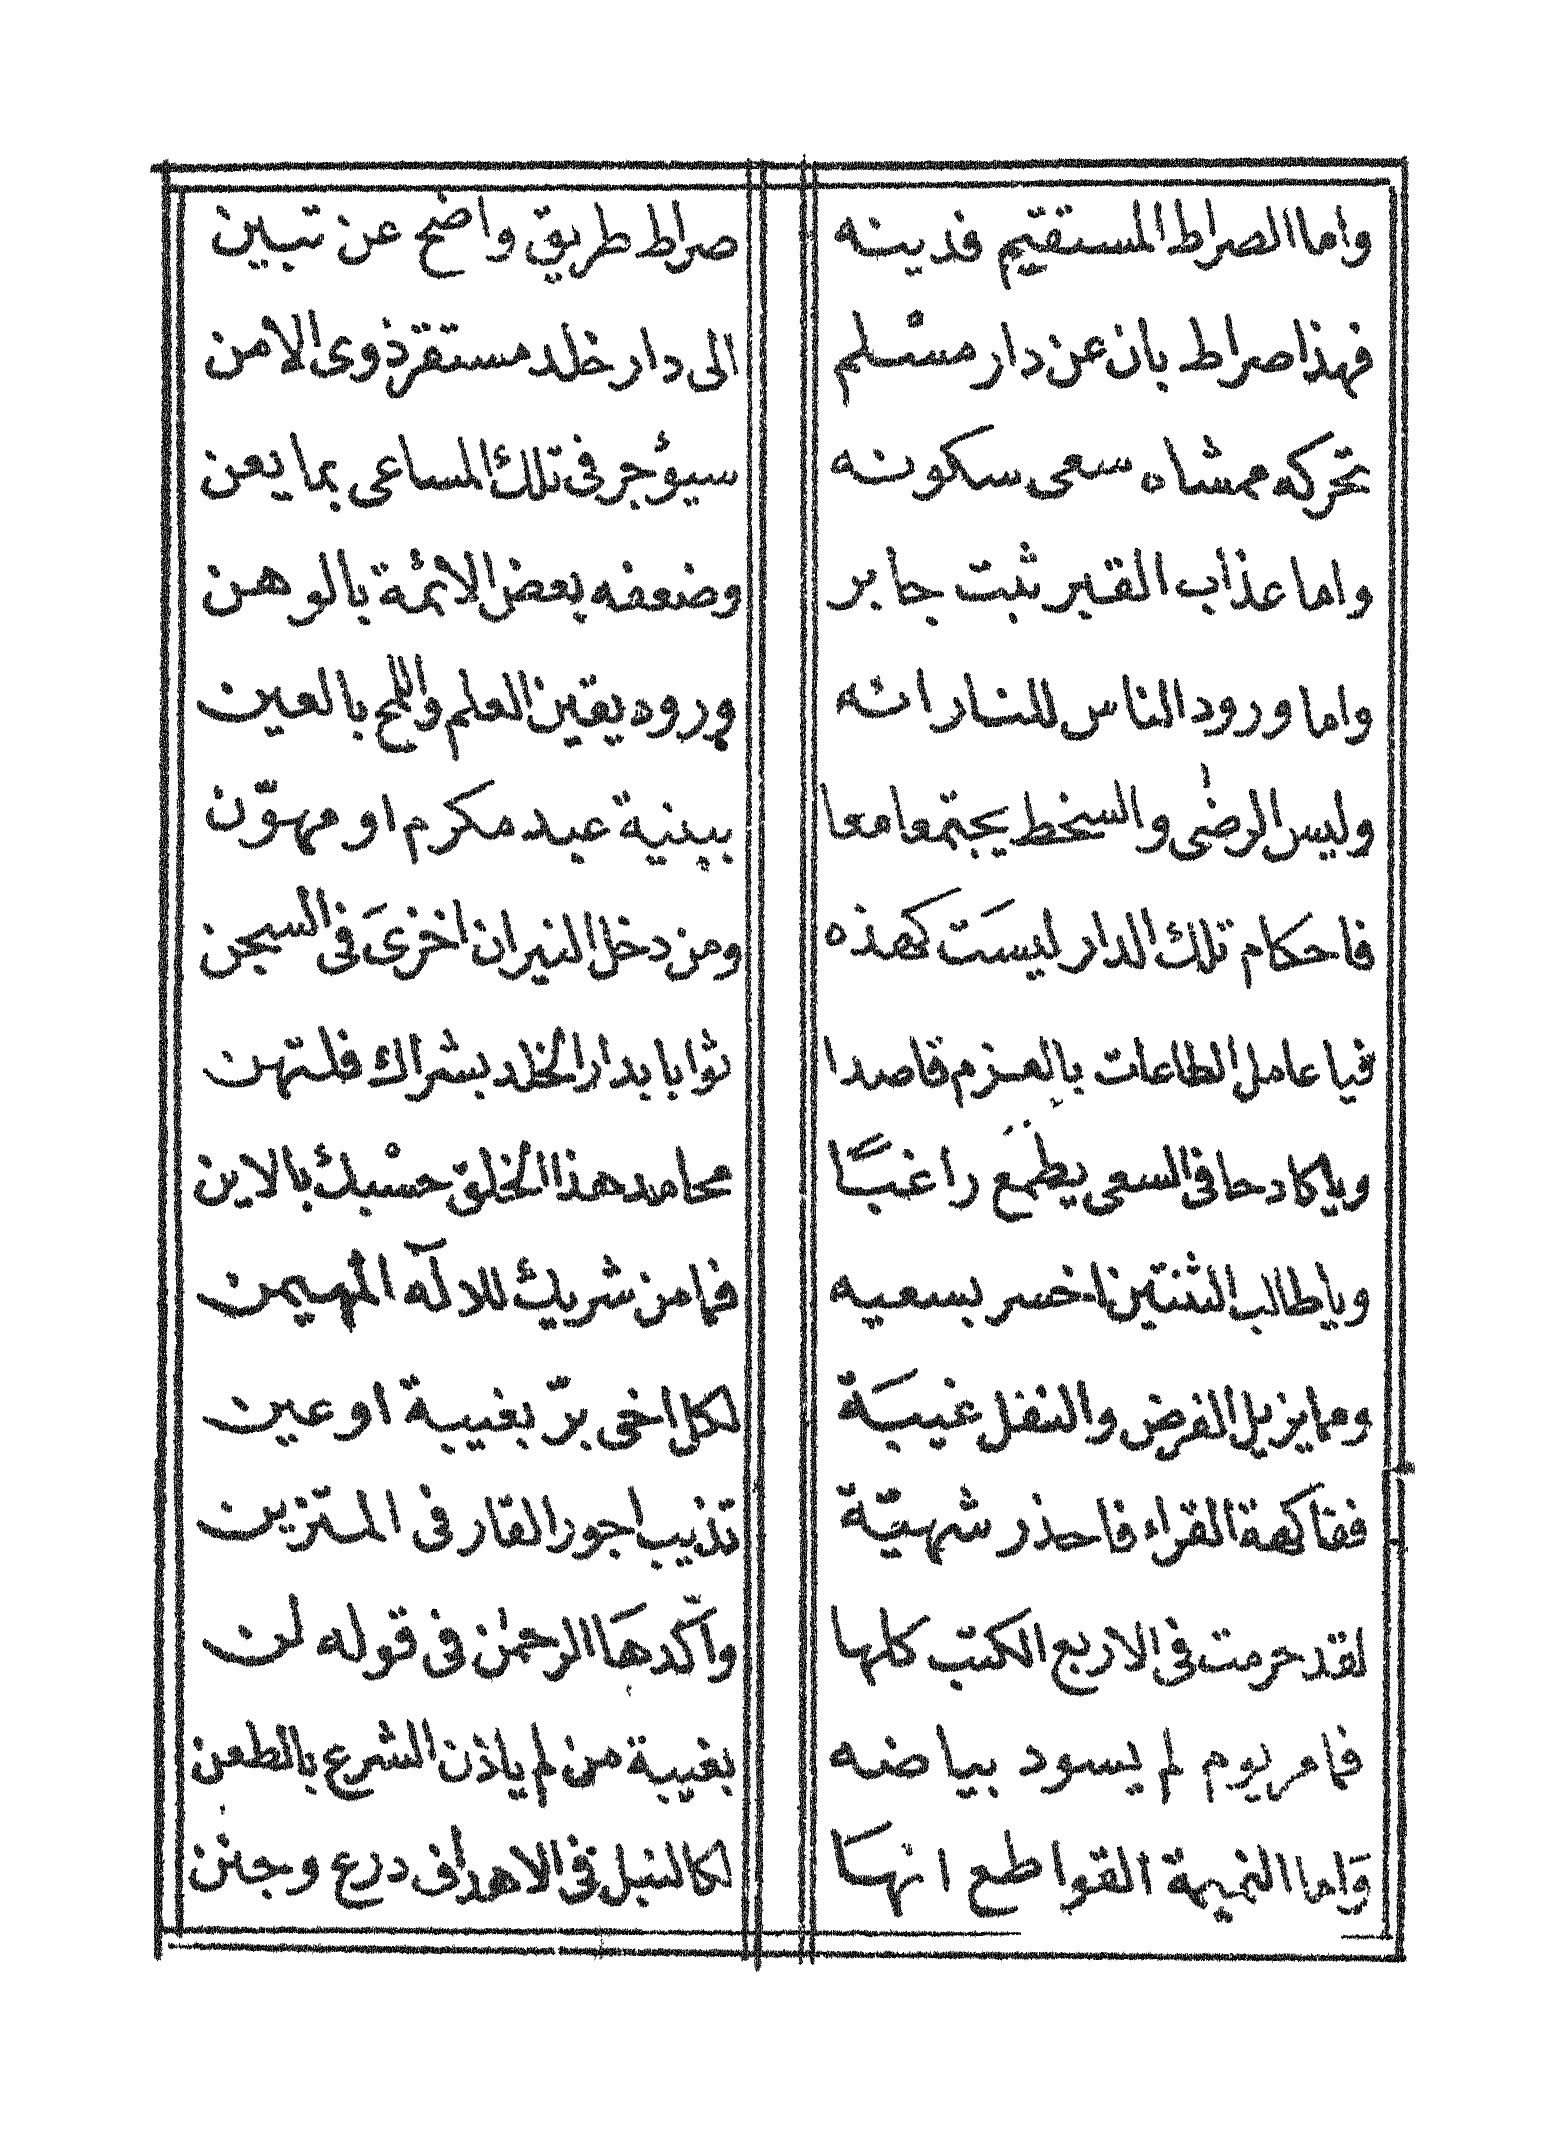 واما الصراط المستقيم فدينه صراط طريق واضح عن تبين
فهذا صراط بان عن دار مسْلم الى دار خلد مستقر ذوى الامن
تحركه ممشاه سعى سكونه سيؤجر فى تلك المساعى بما يعن
واما عذاب القبر ثبت جابر وضعفه بعض الائمة بالوهن
واما ورود الناس للنار انه وروده يقين العلم واللمح بالعين
وليس الرضٰى والسخط يجتمعا معا ببنية عبد مكرم او مهوّن
فاحكام تلك الدار ليسَت كهذه ومن دخل النيران اخرىَ فى السجن
فيا عامل الطاعات بالعزم قاصدا ثوابا بدار الخلد بشراك فلتهن
ويا كادحا فى السعى يطمع راغبًا محامد هذا الخلق حسْبك بالاين
ويا طالب الثنتين اخسر بسعيه فمامن شريك للاله المهيمن
ومما يزيل الفرض والنفل غيبَة لكل اخى برّ بغيبة او عين
ففاكهة القراء فاحذر شهيّة تذيب اجور القار فى المتزين
لقد حرمت فى الاربع الكتب كلها واكّدهَا الرحمٰن فى قوله لن
فمامر يوم لم يسود بياضه بغيبة من لم ياذن الشرع بالطعن
وَاما النميمة القواطع انهَا لكا لنبل فى الاهداف درع وجنن